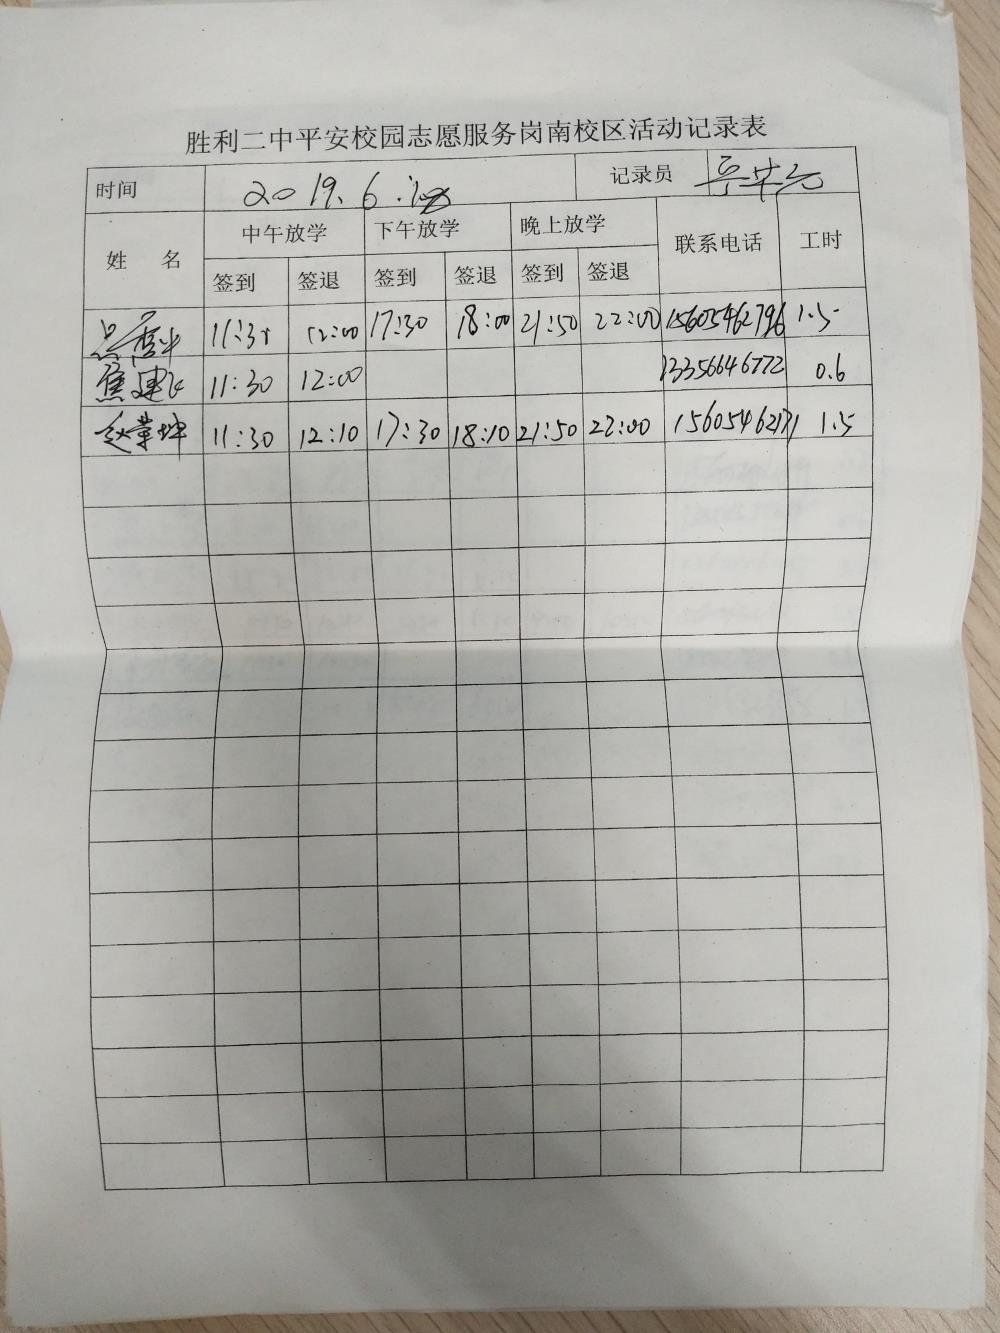 胜利二中平安校园志愿服务岗南校区活动记录表
时间 2019.6. 记录员
姓 名 中午放学 下午放学 晚上放学 联系电话 工时
签到 签退 签到 签退 签到 签退
11:30 12:00 17:30 18:00 21:50 22:00 15605462796 1.5
焦建 11:30 12:00 13356646772 0.6
赵荣坤 11:30 12:10 17:30 18:10 21:50 22:00 15605462171 1.5